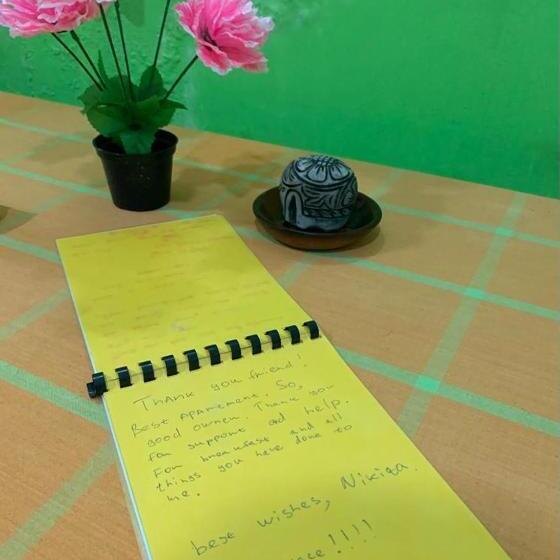 Thank you friend!
Best Apartment. So,
good owner. Thank you
for support and help.
For breakfast and all
things you have done to
me.
best wishes, Nikita.
!!!!